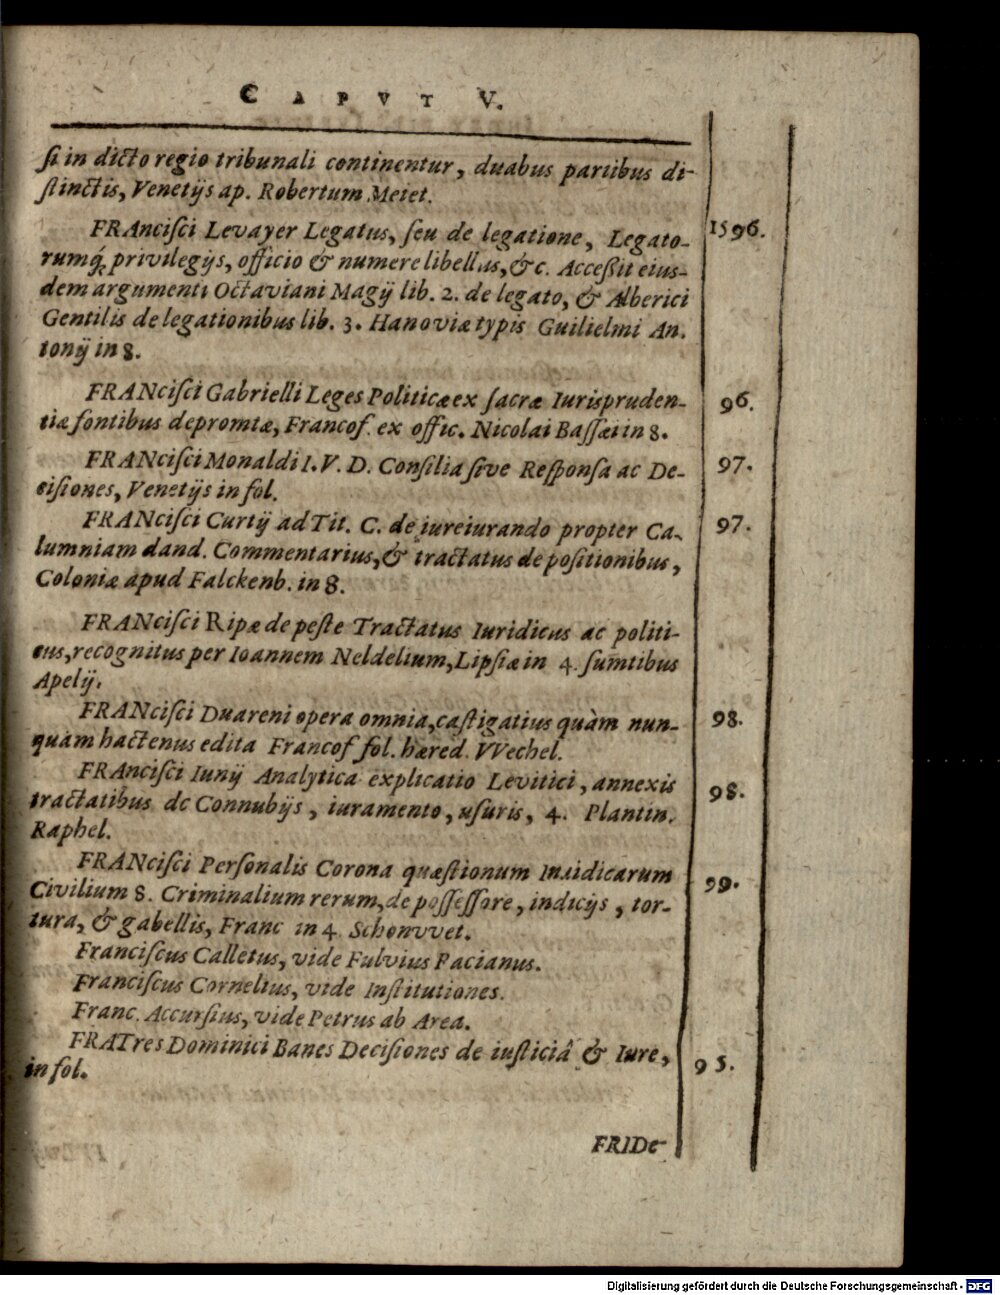 CAPVT V.
ſi in dicto regio tribunali continentur, duabus partibus di-
ſtinctis, Venetijs ap. Robertum Meiet.
FRAnciſci Levayer Legatus, ſeu de legatione, Legato- 1596.
rumq́; privilegijs, officio & numere libellus, &c. Acceßit eius-
dem argumenti Octaviani Magij lib. 2. de legato, & Alberici
Gentilis de legationibus lib. 3. Hanoviæ typis Guilielmi An.
tonij in 8.
FRANciſci Gabrielli Leges Politicæ ex ſacræ Iurispruden- 96.
tiæ fontibus depromtæ, Francof. ex offic. Nicolai Baſſæi in 8.
FRANciſci Monaldi I. V. D. Conſilia ſive Reſponſa ac De- 97.
ciſiones, Venetijs in fol.
FRANciſci Curtij ad Tit. C. de iureiurando propter Ca- 97.
lumniam dand. Commentarius, & tractatus de poſitionibus,
Coloniæ apud Falckenb. in 8.
FRANciſci Ripæ de peſte Tractatus Iuridicus ac politi-
cus, recognitus per Ioannem Neldelium, Lipſiæ in 4. ſumtibus
Apelij.
FRANciſci Duareni opera omnia, caſtigatius quàm nun- 98.
quam hactenus edita Francof fol. hæred. VVechel.
FRAnciſci Iunij Analytica explicatio Levitici, annexis 98.
tractatibus de Connubijs, iuramento, uſuris, 4. Plantin.
Raphel.
FRANciſci Perſonalis Corona quæſtionum Iuridicarum 99.
Civilium 8. Criminalium rerum, de poſſeſſore, indicijs, tor-
tura, & gabellis, Franc in 4 Schonvvet.
Franciſcus Calletus, vide Fulvius Pacianus.
Franciſcus Cornelius, vide Inſtitutiones.
Franc. Accurſius, vide Petrus ab Area.
FRATres Dominici Banes Deciſiones de iuſticiâ & Iure, 95.
in fol.
FRIDe-
Digitalisierung gefördert durch die Deutsche Forschungsgemeinschaft - DFG